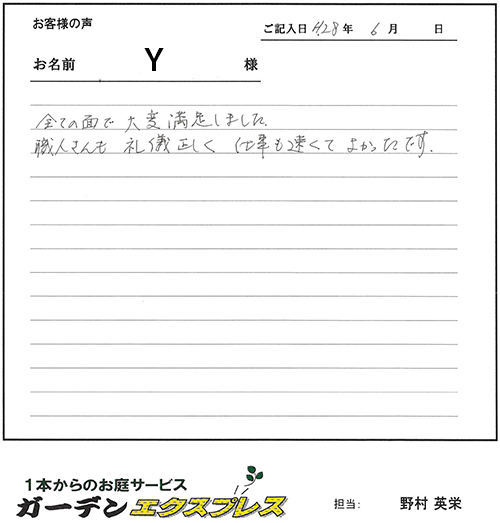 お客様の声
ご記入日 H28年 6月 日
お名前 Y 様
全ての面で 大変満足しました.
職人さんも 礼儀正しく 仕事も速くて よかったです.
1本からのお庭サービス
ガーデンエクスプレス
担当: 野村 英栄